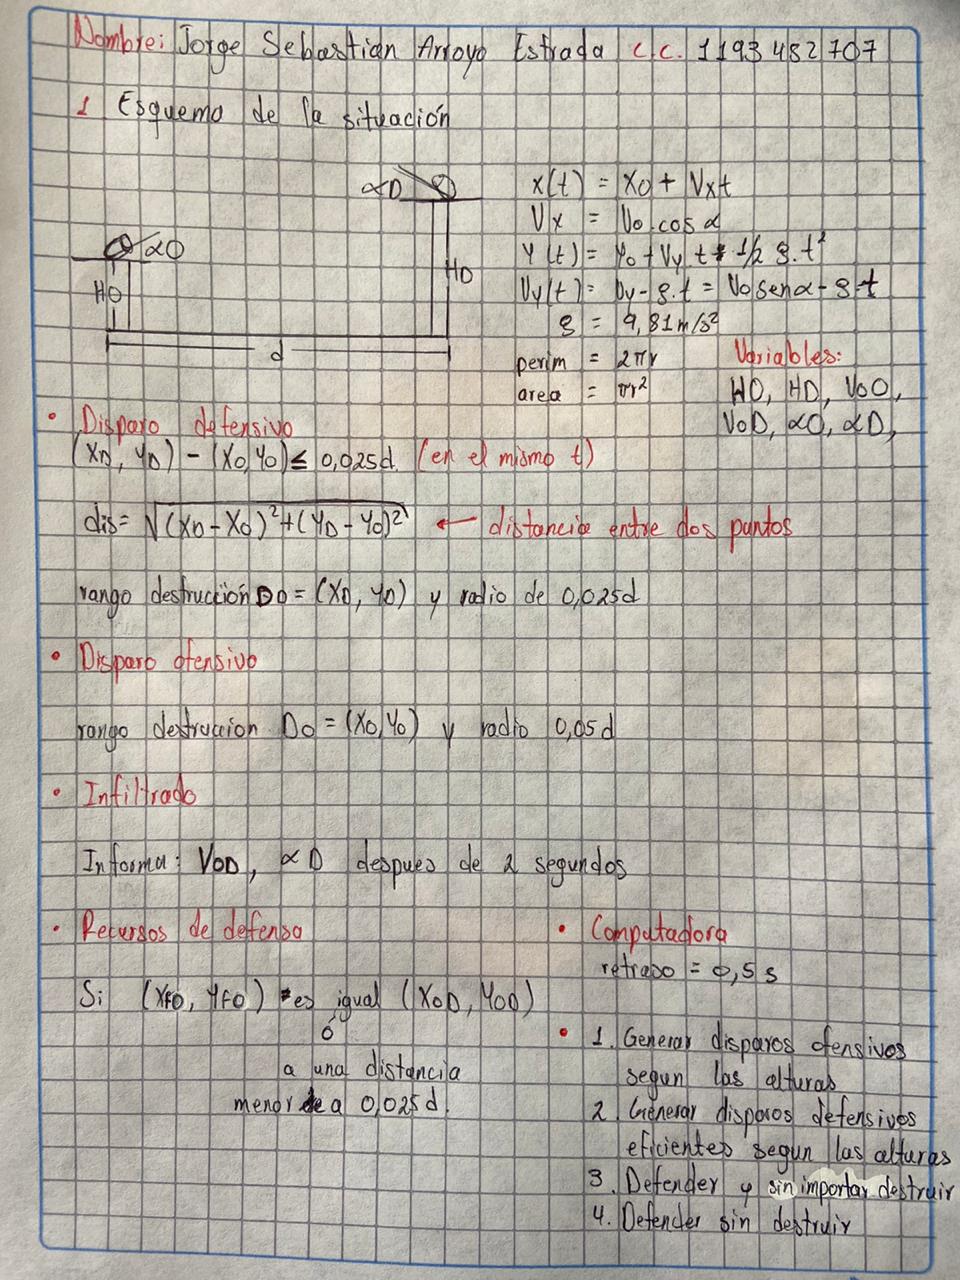 Nombre: Jorge Sebastian Arroyo Estrada c.c. 1193482707
1 Esquema de la situación
αD
αO
HO
HD
d
x(t) = Xo + Vxt
Vx = Vo.cos α
Y(t) = Yo + Vy.t - 1/2 g.t²
Vy(t) = Vy - g.t = Vo sen α - g.t
g = 9,81 m/s²
perim = 2πr
area = πr²
Variables:
HO, HD, VoO,
VoD, αO, αD,
• Disparo defensivo
(XD, YD) - (XO, YO) ≤ 0,025d. (en el mismo t)
dis = √(XD-XO)²+(YD-YO)² ← distancia entre dos puntos
rango destrucción DO = (XD, YD) y radio de 0,025d
• Disparo ofensivo
rango destruccion DO = (XO, YO) y radio 0,05d
• Infiltrado
Informa: VOD, αD despues de 2 segundos
• Recursos de defensa
Si (XFO, YFO) es igual (XOD, YOD)
ó
a una distancia
menor a 0,025d.
• Computadora
retraso = 0,5 s
• 1. Generar disparos ofensivos
segun las alturas
2. Generar disparos defensivos
eficientes segun las alturas
3. Defender y sin importar destruir
4. Defender sin destruir